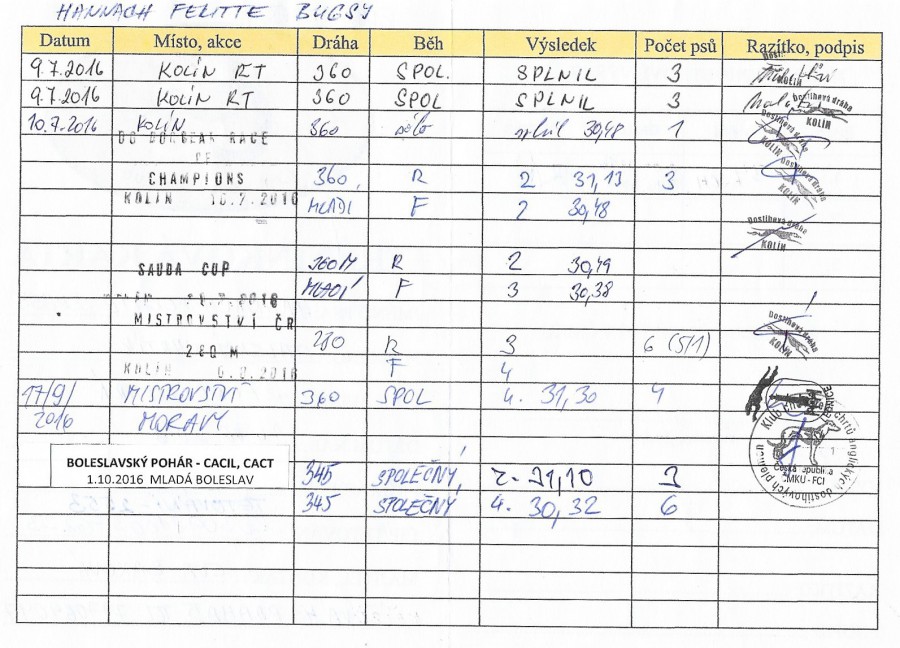 HANNACH FELITTE BUGSY
Datum Místo, akce Dráha Běh Výsledek Počet psů Razítko, podpis
9.7.2016 KOLÍN RT 360 SPOL. SPLNIL 3
9.7.2016 KOLÍN RT 360 SPOL SPLNIL 3
10.7.2016 KOLÍN 360 sólo 30,48 1
RACE
OF
CHAMPIONS 360, R 2 31,13 3
KOLÍN MLADÍ F 2 30,48
SAUDA CUP 360M R 2 30,49
MLADÍ F 3 30,38
MISTROVSTVÍ ČR
280 M 280 R 3 6 (5/1)
KOLÍN 6.8.2016 F 4
17/9/ MISTROVSTVÍ 360 SPOL 4. 31,30 4
2016 MORAVY
BOLESLAVSKÝ POHÁR - CACIL, CACT
1.10.2016 MLADÁ BOLESLAV 345 SPOLEČNÝ, 2. 31,10 3
345 SPOLEČNÝ 4. 30,32 6
Dostihová dráha
KOLÍN
Dostihová dráha
KOLÍN
Dostihová dráha
Dostihová dráha
KOLÍN
Dostihová dráha
KOLÍN
ČMKU - FCI